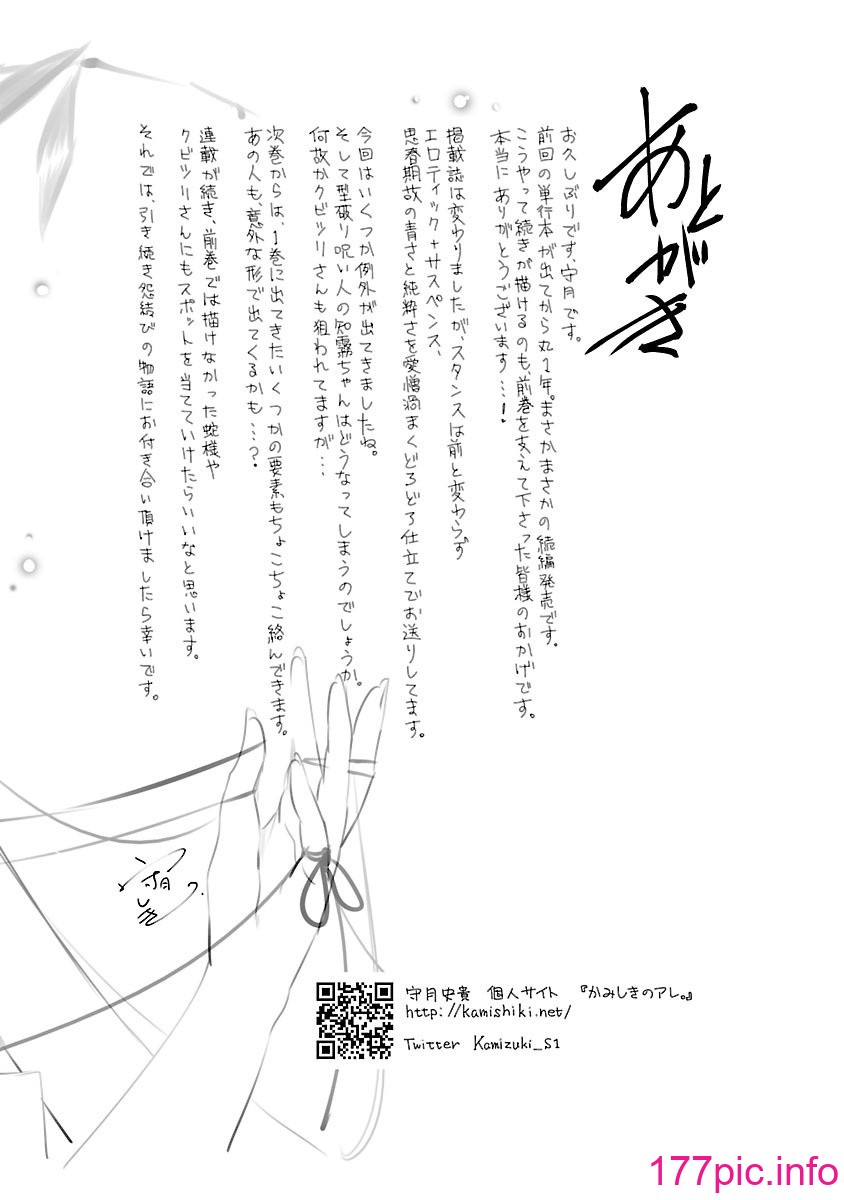 あとがき
お久しぶりです、守月です。
前回の単行本が出てから丸1年。まさかまさかの続編発売です。
こうやって続きが描けるのも、前巻を支えて下さった皆様のおかげです。
本当にありがとうございます…!
掲載誌は変わりましたが、スタンスは前と変わらず
エロティック+サスペンス、
思春期故の青さと純粋さを愛憎渦まくどろどろ仕立てでお送りしてます。
今回はいくつか例外が出てきましたね。
そして型破り呪い人の知霧ちゃんはどうなってしまうのでしょうか。
何故かクビツリさんも狙われてますが…
次巻からは、1巻に出てきたいくつかの要素もちょこちょこ絡んできます。
あの人も、意外な形で出てくるかも…?
連載が続き、前巻では描けなかった蛇様や
クビツリさんにもスポットを当てていけたらいいなと思います。
それでは、引き続き怨結びの物語にお付き合い頂けましたら幸いです。
守月
しき
守月史貴 個人サイト 『かみしきのアレ。』
http://kamishiki.net/
Twitter Kamizuki_S1
177pic.info